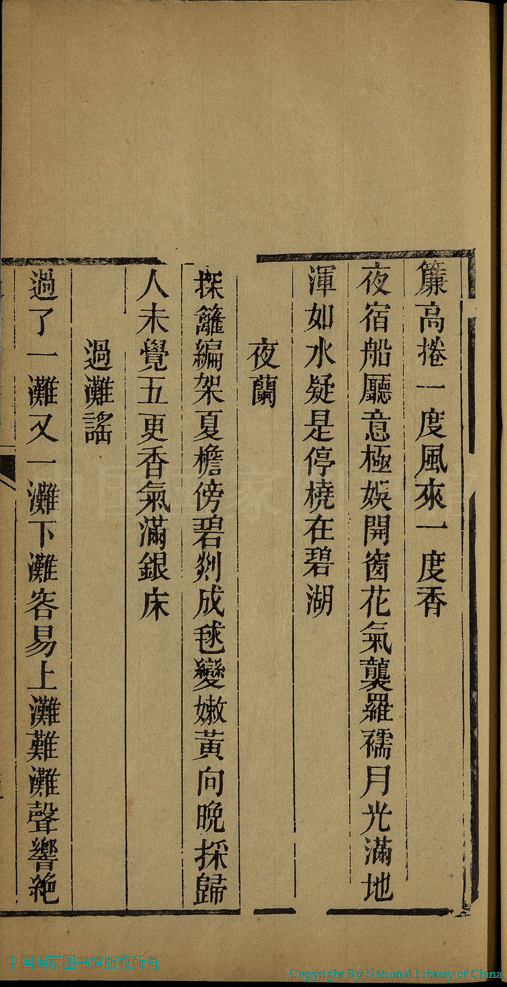 簾高捲一度風來一度香
夜宿船廳意極娛開窗花氣襲羅襦月光滿地
渾如水疑是停橈在碧湖
夜蘭
探籬編架夏檐傍碧剡成毬變嫩黃向晚採歸
人未覺五更香氣滿銀床
過灘謠
過了一灘又一灘下灘容易上灘難灘聲響絶
中国国家图书馆版权所有
Copyright By National Library of China